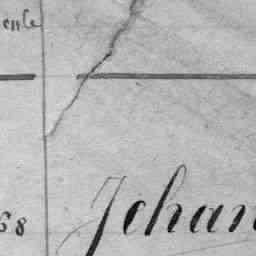 ente
68 Jehan